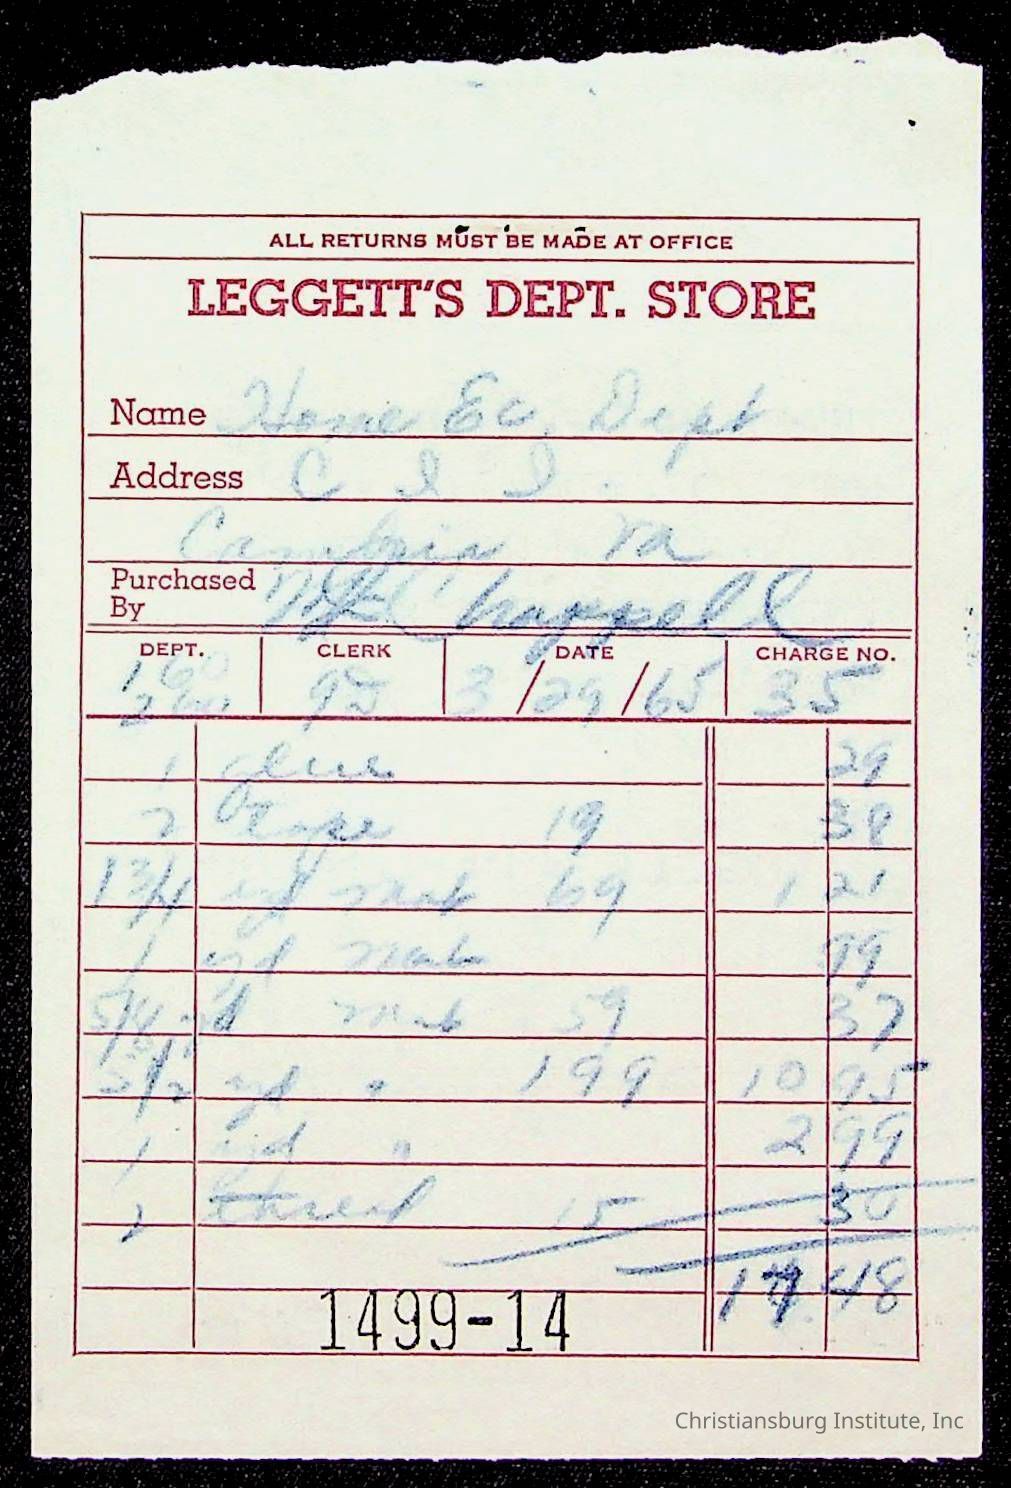 ALL RETURNS MUST BE MADE AT OFFICE
LEGGETT'S DEPT. STORE
Name Home Ec. Dept
Address C I I.
Cambria Va
Purchased By Chappell
DEPT. CLERK DATE CHARGE NO.
160 95 3/29/65 35
260
1 glue 29
2 Tape 19 38
1 3/4 yd mat 69 1 21
1 yd mat 99
5/4 yd mat 59 37
5 1/2 yd " 199 10 95
1 yd " 2 99
2 thread 15 30
17.48
1499-14
Christiansburg Institute, Inc